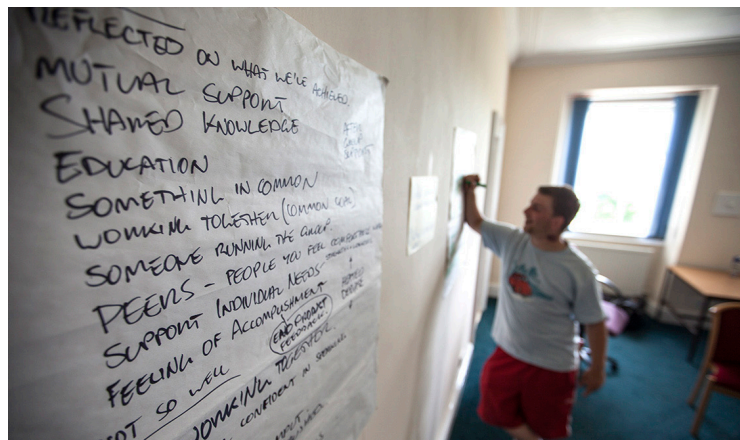 REFLECTED ON WHAT WE'VE ACHIEVED
MUTUAL SUPPORT
SHARED KNOWLEDGE
EDUCATION
SOMETHING IN COMMON
WORKING TOGETHER (COMMON GOAL)
SOMEONE RUNNING THE GROUP
PEERS - PEOPLE YOU FEEL COMFORTABLE
SUPPORT INDIVIDUAL NEEDS
FEELING OF ACCOMPLISHMENT
END PRODUCT
FEEDBACK.
NOT SO WELL
WORKING TOGETHER
CONFIDENT IN SPEAKING